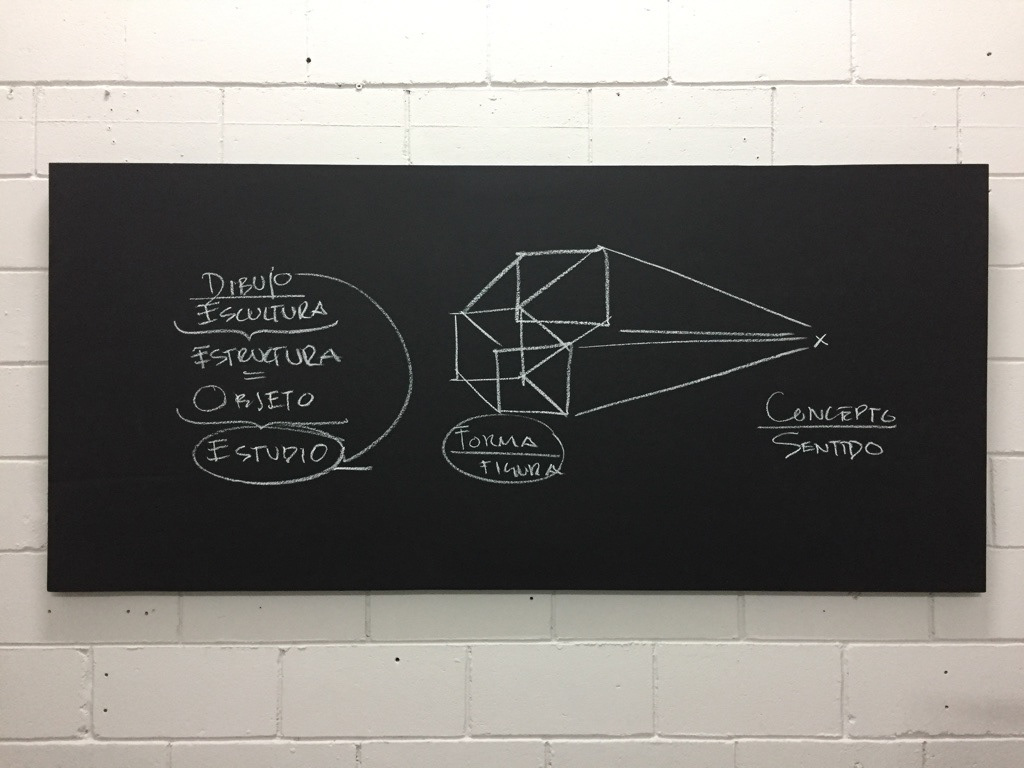 DIBUJO
ESCULTURA
ESTRUCTURA
=
OBJETO
ESTUDIO
FORMA
FIGURA
X
CONCEPTO
SENTIDO